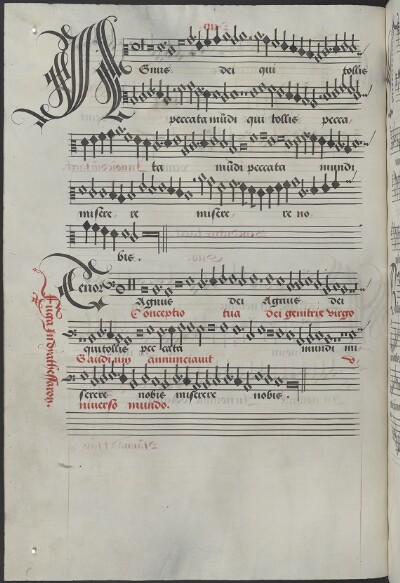 Agnus dei qui tollis
peccata mũdi qui tollis pecca
ta mũdi peccata mundi
misere re misere re no
bis.
Tenor
Agnus dei Agnus dei
Conceptio tua dei genitrix virgo
qui tollis peccata mundi mi
Gaudium annunciavit v
serere nobis miserere nobis.
niverso mundo.
Fuga in